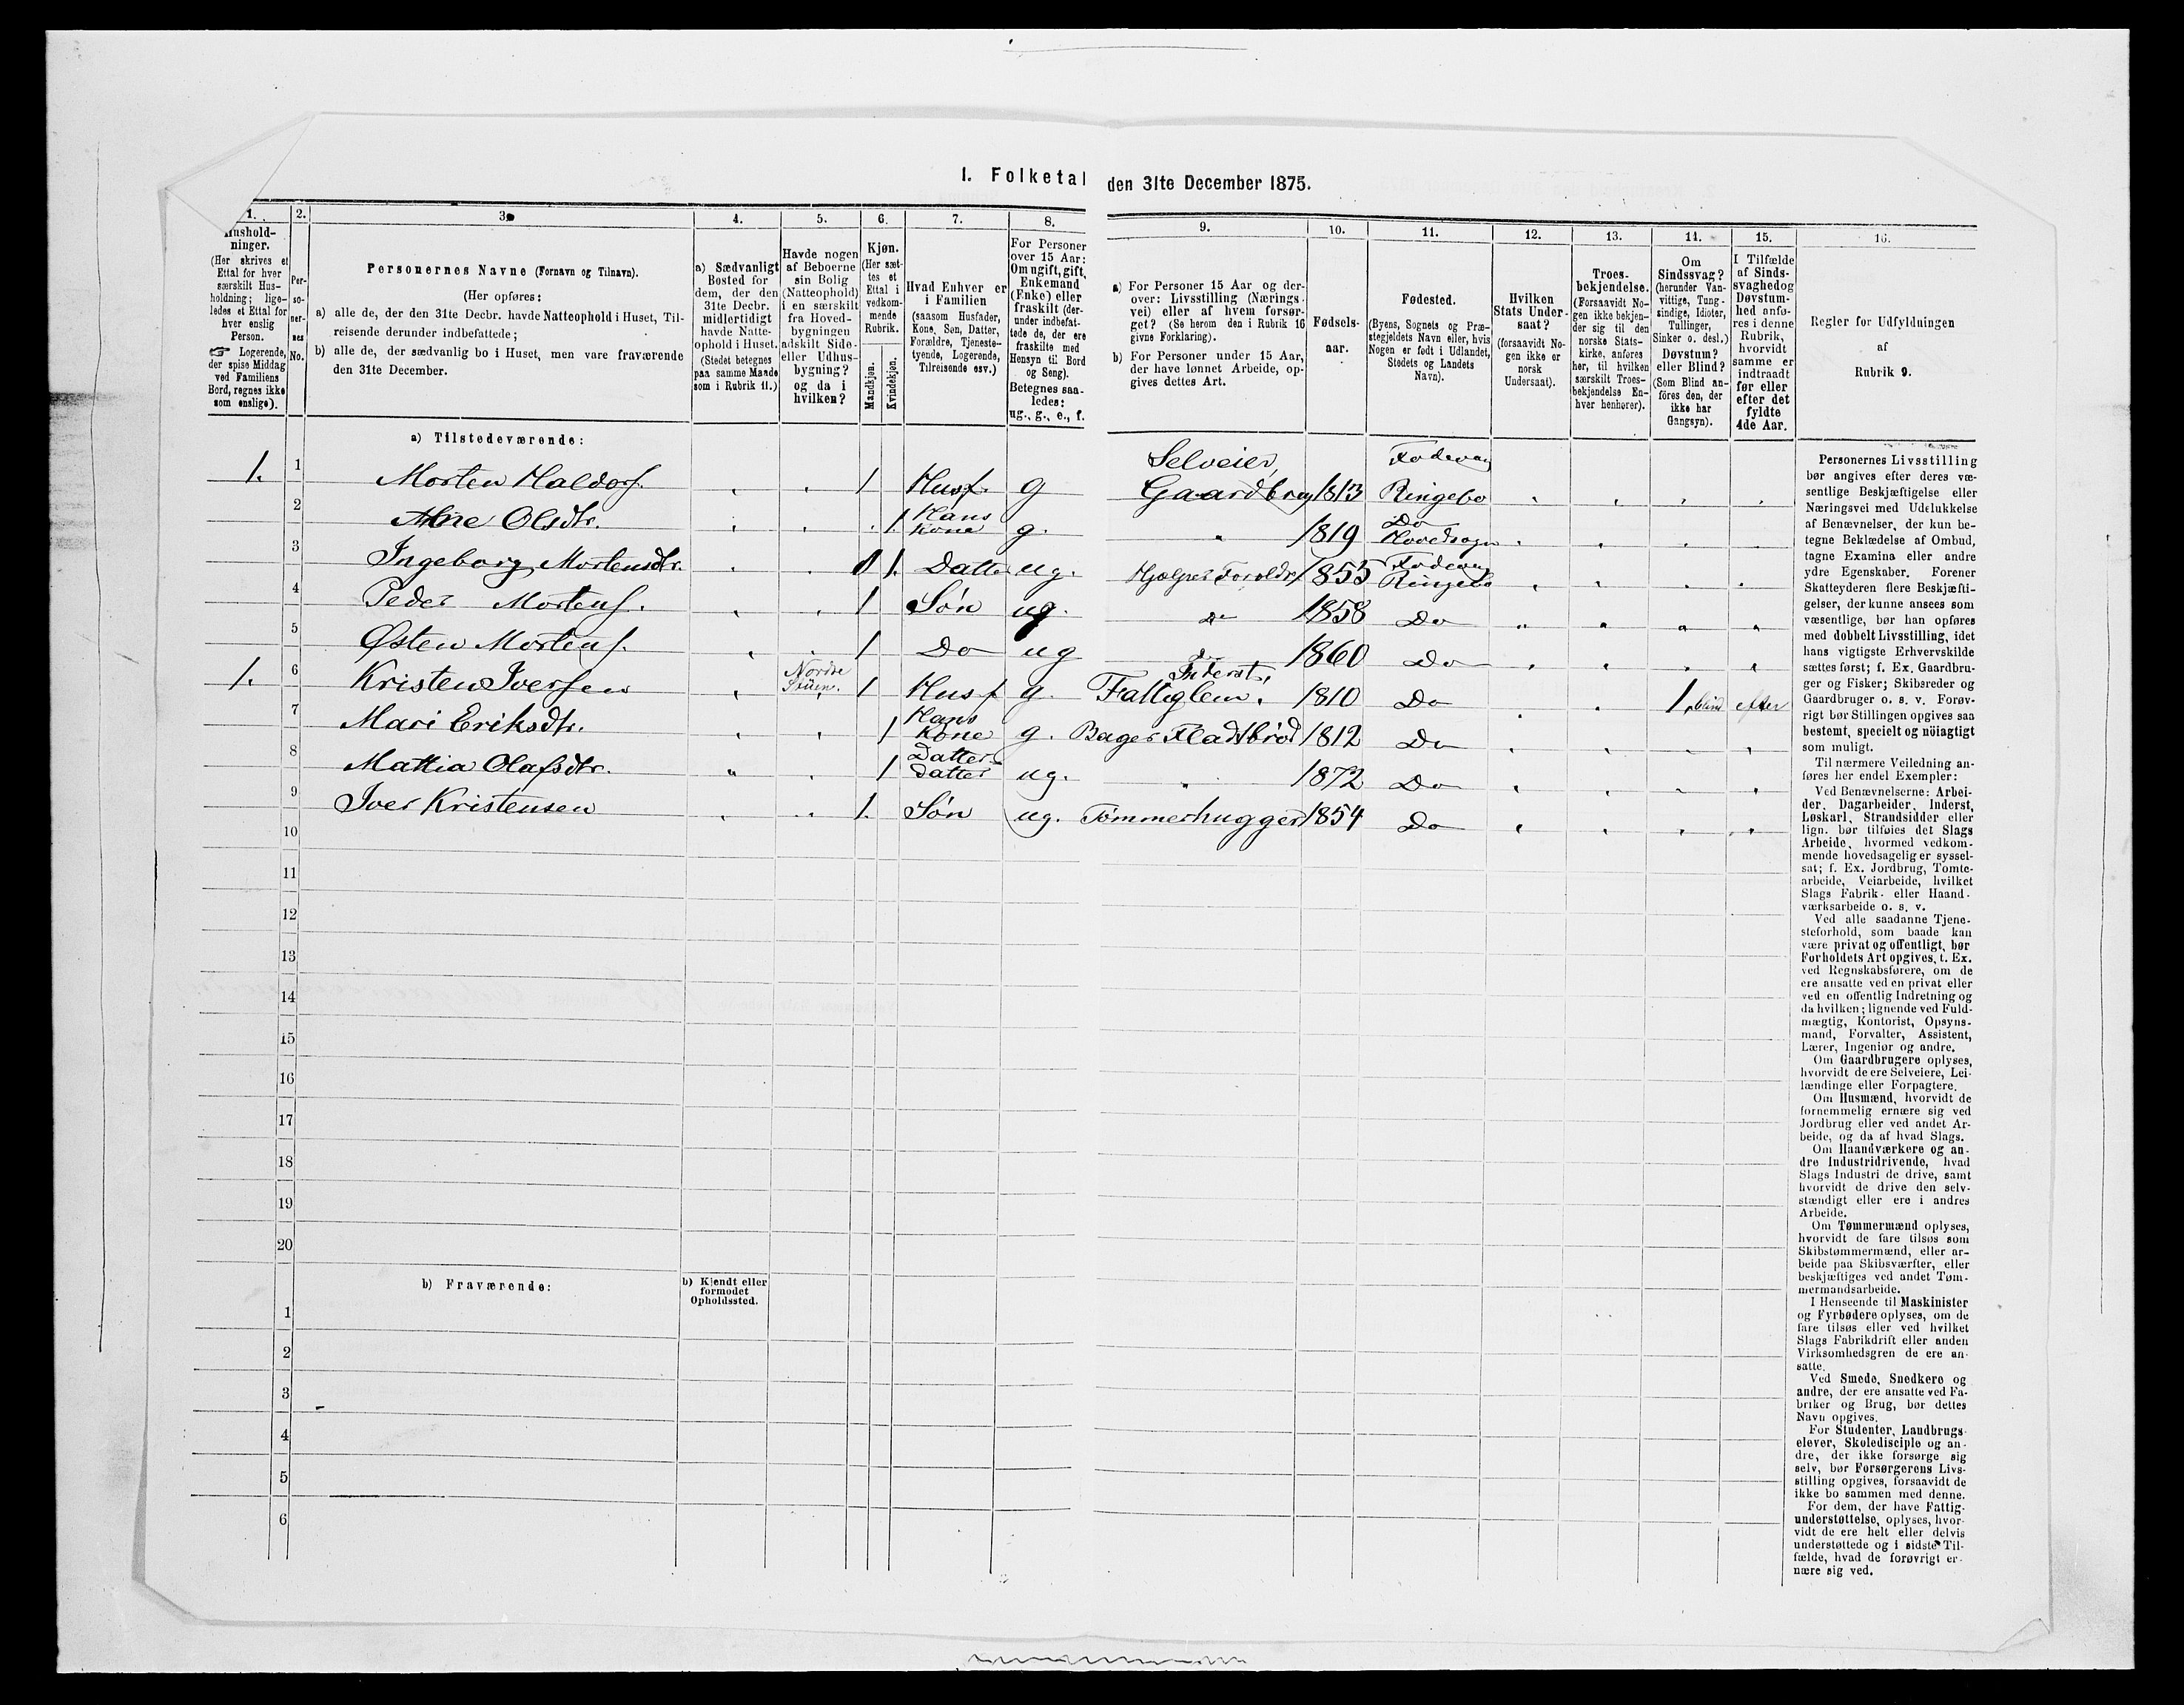 I. Folketal den 31te December 1875.
1. 2. 3. 4. 5. 6. 7. 8. 9. 10. 11. 12. 13. 14. 15. 16.
Hushold-
ninger.
(Her skrives et
Ettal for hver
særskilt Hus-
holdning; lige-
ledes et Ettal for
hver enslig
Person.
☞ Logerende,
der spise Middag
ved Familiens
Bord, regnes ikke
som enslige).
Per-
so-
ner-
nes
No.
Personernes Navne (Fornavn og Tilnavn).
(Her opføres:
a) alle de, der den 31te Decbr. havde Natteophold i Huset, Til-
reisende derunder indbefattede;
b) alle de, der sædvanlig bo i Huset, men vare fraværende
den 31te December.
a) Sædvanligt
Bosted for
dem, der den
31te Decbr.
midlertidigt
havde Natte-
ophold i Huset.
(Stedet betegnes
paa samme Maade
som i Rubrik 11.)
Havde nogen
af Beboerne
sin Bolig
(Natteophold)
i en særskilt
fra Hoved-
bygningen
adskilt Side-
eller Udhus-
bygning?
og da i
hvilken?
Kjøn.
(Her sæt-
tes et
Ettal i
vedkom-
mende
Rubrik.
Mandkjøn.
Kvindekjøn.
Hvad Enhver er
i Familien
(saasom Husfader,
Kone, Søn, Datter,
Forældre, Tjeneste-
tyende, Logerende,
Tilreisende osv.)
For Personer
over 15 Aar:
Om ugift, gift,
Enkemand
(Enke) eller
fraskilt (der-
under indbefat-
tede de, der ere
fraskilte med
Hensyn til Bord
og Seng).
Betegnes saa-
ledes:
ug., g., e., f.
a) For Personer 15 Aar og der-
over: Livsstilling (Nærings-
vei) eller af hvem forsør-
get? (Se herom den i Rubrik 16
givne Forklaring).
b) For Personer under 15 Aar,
der have lønnet Arbeide, op-
gives dettes Art.
Fødsels-
aar.
Fødested.
(Byens, Sognets og Præ-
stegjeldets Navn eller, hvis
Nogen er født i Udlandet,
Stedets og Landets
Navn).
Hvilken
Stats Under-
saat?
(forsaavidt No-
gen ikke er
norsk
Undersaat).
Troes-
bekjendelse.
(Forsaavidt No-
gen ikke bekjen-
der sig til den
norske Stats-
kirke, anføres
her, til hvilken
særskilt Troes-
bekjendelse En-
hver henhører).
Om
Sindssvag?
(herunder Van-
vittige, Tung-
sindige, Idioter,
Tullinger,
Sinker o. desl.)
Døvstum?
eller Blind?
(Som Blind an-
føres den, der
ikke har
Gangsyn).
I Tilfælde
af Sinds-
svaghed og
Døvstum-
hed anfø-
res i denne
Rubrik,
hvorvidt
samme er
indtraadt
før eller
efter det
fyldte
4de Aar.
Regler for Udfyldningen
af
Rubrik 9.
a) Tilstedeværende:
1. 1 Morten Haldors. 1 Husf. g Selveier, Gaardbrug 1813 Fodevang Ringebo
2 Ane Olsdtr. 1. Hans Kone g. 1819 Do Hovedsogn
3 Ingeborg Mortensdtr. 1. Datter ug. Hjælper Foreldre 1855 Fodevang Ringebo
4 Peder Mortens. 1 Søn ug. Do 1858 Do
5 Østen Mortens. 1 Do ug Do 1860 Do
1. 6 Kristen Iversen Nordre Stuen. 1 Husf g. Inderst, Fattiglem. 1810 Do 1. blind efter
7 Mari Eriksdtr. 1 Hans Kone g. Bager Fladtbrød 1812 Do
8 Mattia Olafsdtr. 1 Datter datter ug. 1872 Do
9 Iver Kristensen 1. Søn ug. Tømmerhugger 1854 Do
10
11
12
13
14
15
16
17
18
19
20
b) Fraværende:
b) Kjendt eller
formodet
Opholdssted.
1
2
3
4
5
6
Personernes Livsstilling
bør angives efter deres væ-
sentlige Beskjæftigelse eller
Næringsvei med Udelukkelse
af Benævnelser, der kun be-
tegne Beklædelse af Ombud,
tagne Examina eller andre
ydre Egenskaber. Forener
Skatteyderen flere Beskjæfti-
gelser, der kunne ansees som
væsentlige, bør han opføres
med dobbelt Livsstilling, idet
hans vigtigste Erhvervskilde
sættes først; f. Ex. Gaardbru-
ger og Fisker; Skibsreder og
Gaardbruger o. s. v. Forøv-
rigt bør Stillingen opgives saa
bestemt, specielt og nöiagtigt
som muligt.
Til nærmere Veiledning an-
føres her endel Exempler:
Ved Benævnelserne: Arbei-
der, Dagarbeider, Inderst,
Løskarl, Strandsidder eller
lign. bør tilføies det Slags
Arbeide, hvormed vedkom-
mende hovedsagelig er syssel-
sat; f. Ex. Jordbrug, Tomte-
arbeide, Veiarbeide, hvilket
Slags Fabrik- eller Haand-
værksarbeide o. s. v.
Ved alle saadanne Tjene-
steforhold, som baade kan
være privat og offentligt, bør
Forholdets Art opgives, t. Ex.
ved Regnskabsførere, om de
ere ansatte ved en privat eller
ved en offentlig Indretning og
da hvilken; lignende ved Fuld-
mægtig, Kontorist, Opsyns-
mand, Forvalter, Assistent,
Lærer, Ingeniør og andre.
Om Gaardbrugere oplyses,
hvorvidt de ere Selveiere, Lei-
lændinge eller Forpagtere.
Om Husmænd, hvorvidt de
fornemmelig ernære sig ved
Jordbrug eller ved andet Ar-
beide, og da af hvad Slags.
Om Haandværkere og an-
dre Industridrivende, hvad
Slags Industri de drive, samt
hvorvidt de drive den selv-
stændigt eller ere i andres
Arbeide.
Om Tømmermænd oplyses,
hvorvidt de fare tilsøs som
Skibstømmermænd, eller ar-
beide paa Skibsværfter, eller
beskjæftiges ved andet Tøm-
mermandsarbeide.
I Henseende til Maskinister
og Fyrbødere oplyses, om de
fare tilsøs eller ved hvilket
Slags Fabrikdrift eller anden
Virksomhedsgren de ere an-
satte.
Ved Smede, Snedkere og
andre, der ere ansatte ved Fa-
briker og Brug, bør dettes
Navn opgives.
For Studenter, Landbrugs-
elever, Skoledisciple og an-
dre, der ikke forsørge sig
selv, bør Forsørgerens Livs-
stilling opgives, forsaavidt de
ikke bo sammen med denne.
For dem, der have Fattig-
understøttelse, oplyses, hvor-
vidt de ere helt eller delvis
understøttede og i sidste Til-
fælde, hvad de forøvrigt er-
nære sig ved.